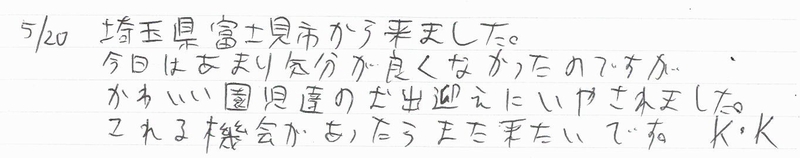 5/20 埼玉県富士見市から来ました。
今日はあまり気分が良くなかったのですが
かわいい園児達のお出迎えにいやされました。
これる機会があったらまた来たいです。 K・K